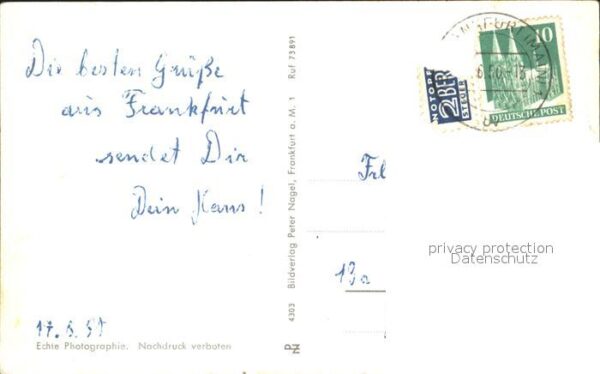 Die besten Grüße
aus Frankfurt
sendet Dir
Dein Hans!
17.5.51
Echte Photographie. Nachdruck verboten
4303 Bildverlag Peter Nagel, Frankfurt a. M. 1 Ruf 73891
NOTOPFER
2 BER
STEUER
10
DEUTSCHE POST
FRANKFURT (MAIN)
Frl
13a
privacy protection
Datenschutz